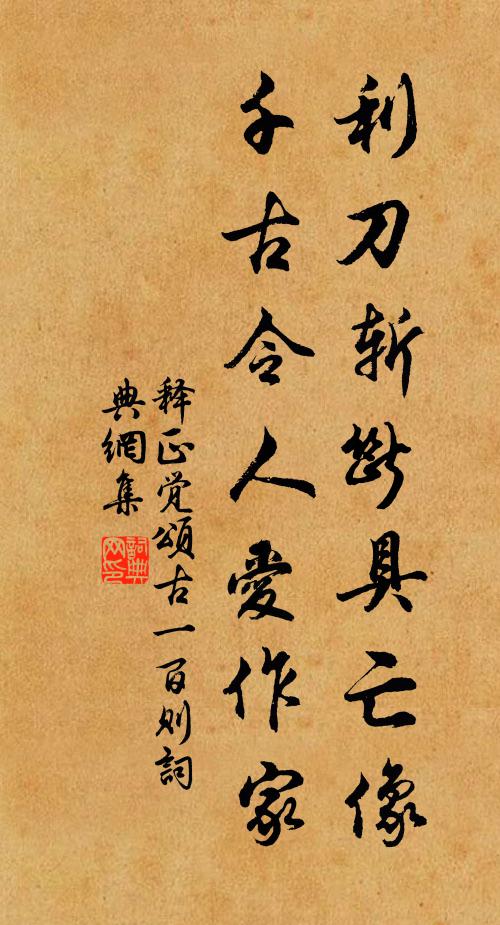 利刀斩断具亡像
千古令人愛作家
释正觉頌古一百则詞
典網集
詞典网印